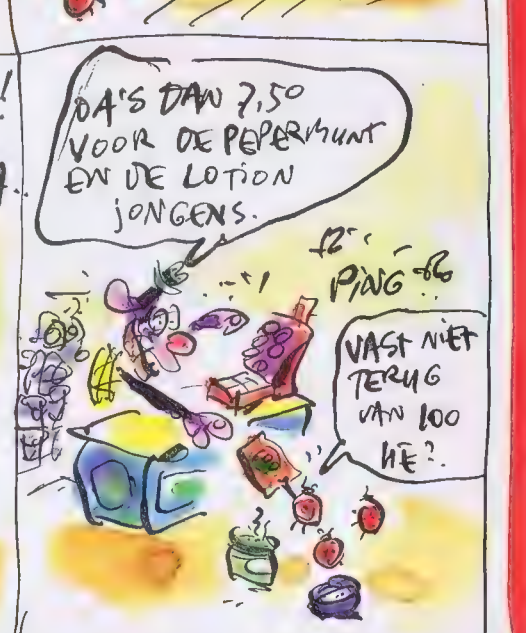 DA'S DAN 7,50
VOOR DE PEPERMUNT
EN DE LOTION
JONGENS.
PING
VAST NIET
TERUG
VAN 100
HE?
100